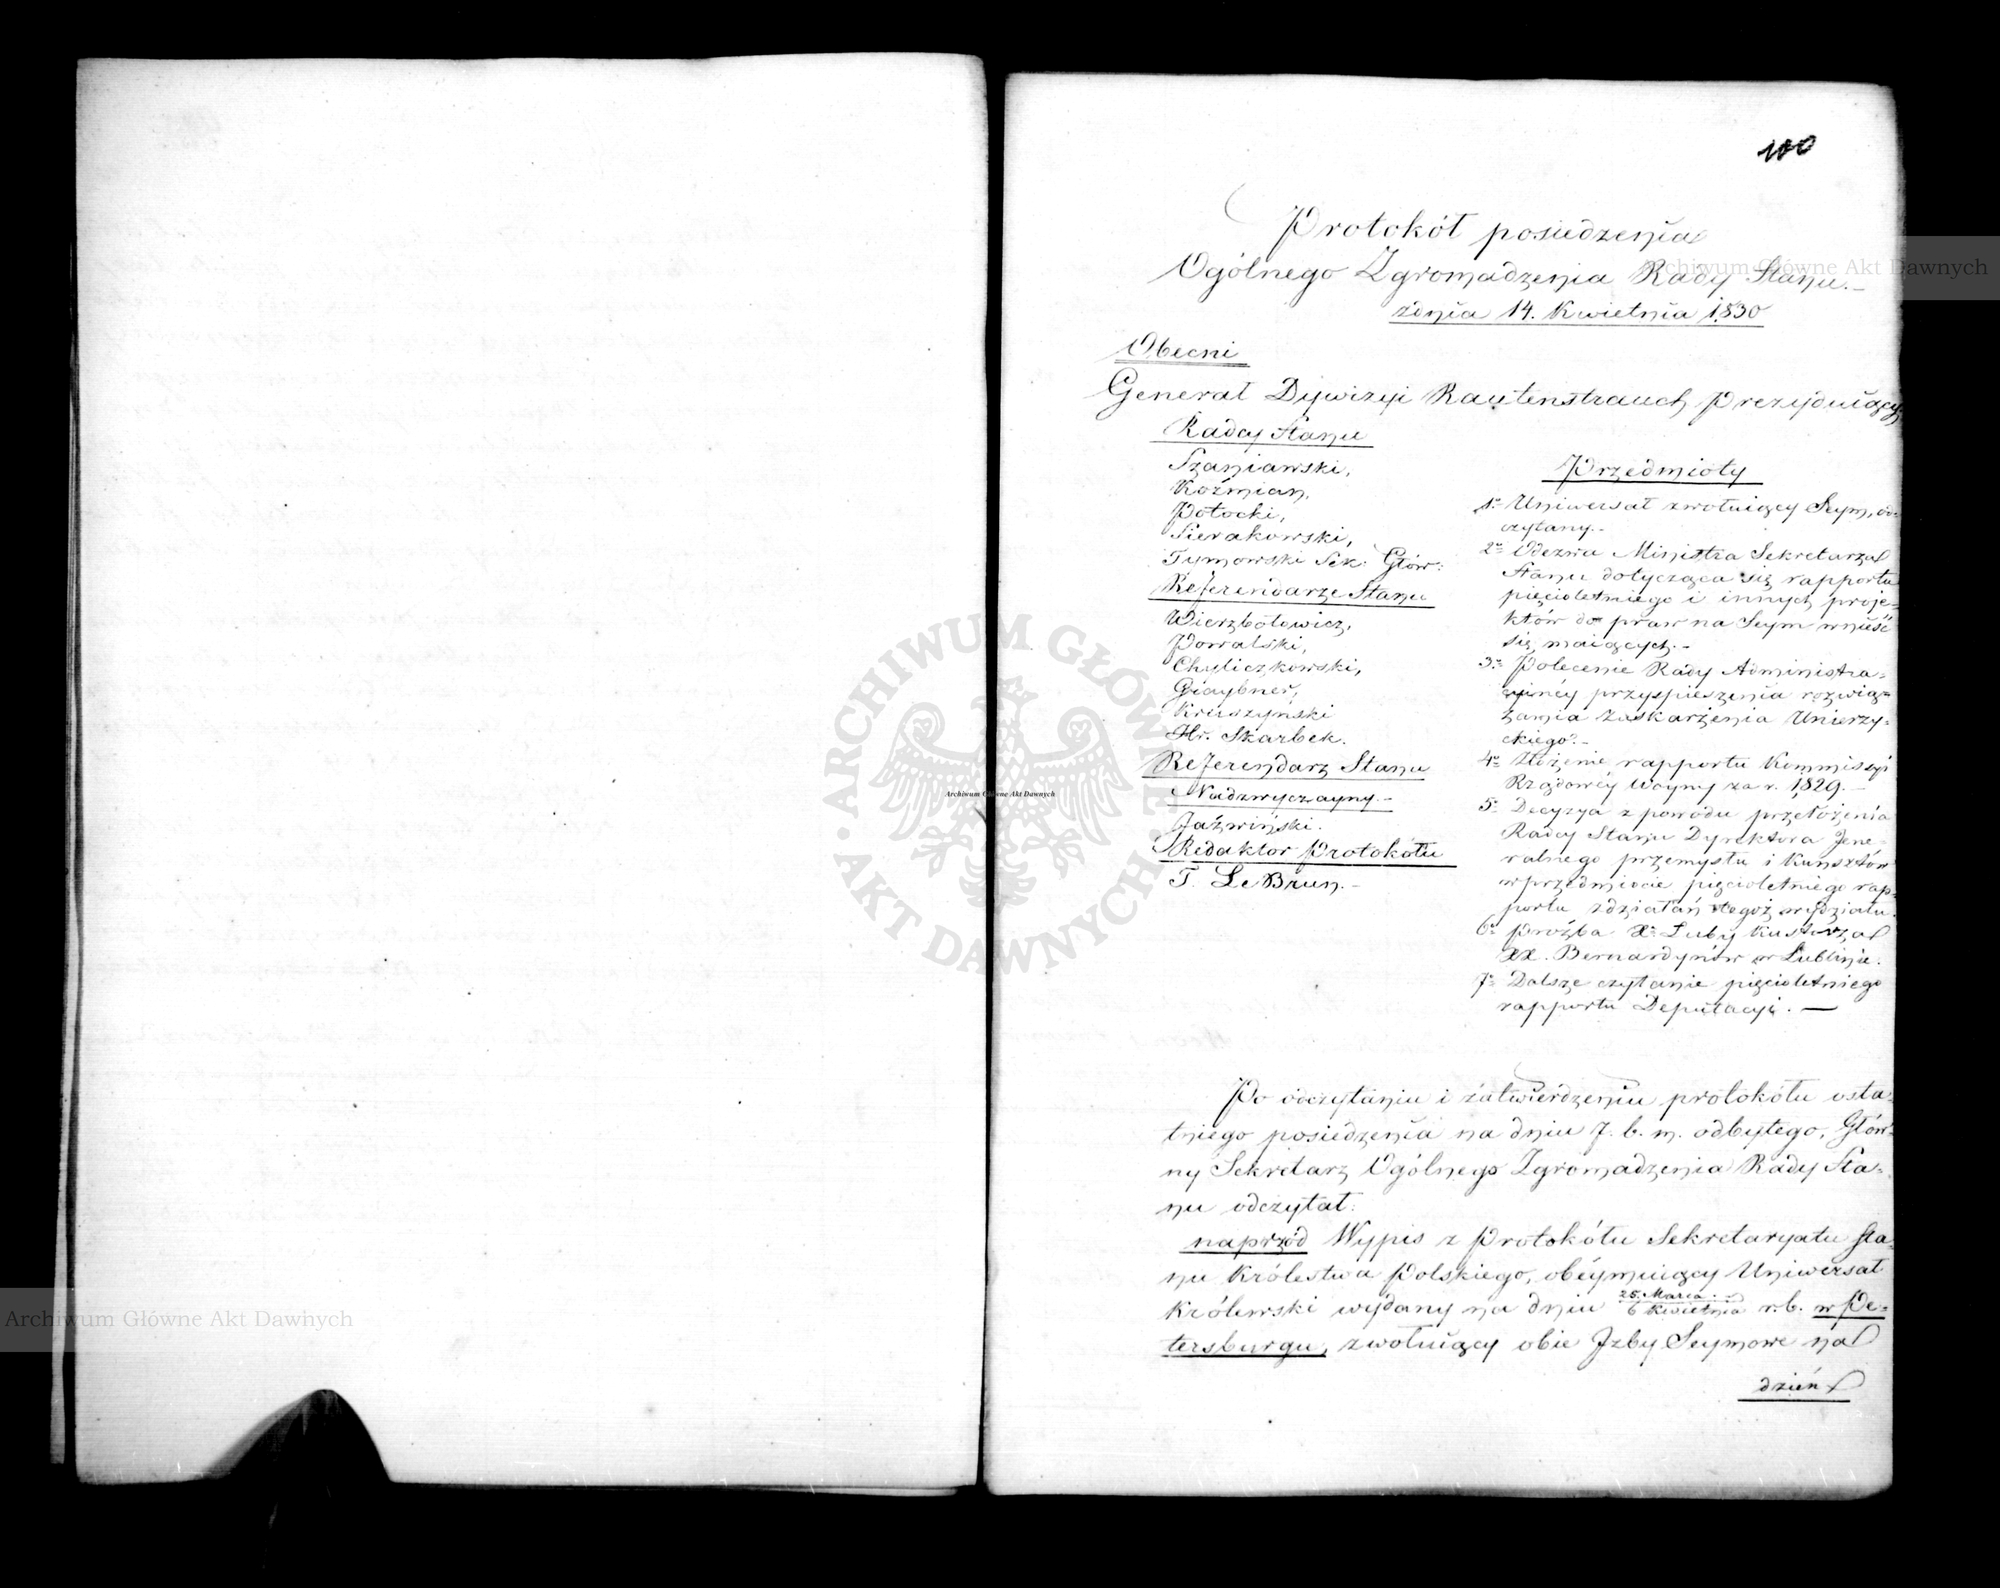 110
Protokół posiedzenia
Ogólnego Zgromadzenia Rady Stanu.-
zdnia 14. Kwietnia 1830
Obecni
Generał Dywizyi Rautenstrauch Prezyduiący
Radcy Stanu
Szaniawski,
Koźmian,
Potocki,
Sierakowski,
Tymowski Sek: Głów:
Referendarze Stanu
Wierzbołowicz,
Powalski,
Chyliczkowski,
Graybner,
Kruszyński
Hr. Skarbek.
Referendarz Stanu
Nadzwyczayny.-
Jaźwiński.
Redaktor Protokółu
T. LeBrun.-
Przedmioty
1º Uniwersał zwołuiący Seym, od-
czytany.-
2º Odezwa Ministra Sekretarza
Stanu dotycząca się rapportu
pięcioletniego i innych proje-
któw do praw na Seym wnieść
się maiących.-
3º Polecenie Rady Administra-
cyinéy przyspieszenia rozwią-
zania zaskarżenia Unierzy-
ckiego.-
4º Złożenie rapportu Kommissyi
Rządowéy Woyny za r. 1829.-
5º Decyzya z powodu przełożenia
Radcy Stanu Dyrektora Jene-
ralnego przemysłu i Kunsztów
w przedmiocie pięcioletniego rap-
portu z działań tegoż wydziału.
6º Proźba X. Luby Kustosza
XX. Bernardynów w Lublinie.
7º Dalsze czytanie pięcioletniego
rapportu Deputacyi. —
Po odczytaniu i zatwierdzeniu protokółu osta-
tniego posiedzenia na dniu 7. b. m. odbytego, Głów-
ny Sekretarz Ogólnego Zgromadzenia Rady Sta-
nu odczytał:
naprzód Wypis z Protokółu Sekretaryatu Sta-
nu Królestwa Polskiego, obéymuiący Uniwersał
Królewski wydany na dniu 25 Marca / 6 Kwietnia r. b. w Pe-
tersburgu, zwołuiący obie Jzby Seymowe na
dzień
Archiwum Główne Akt Dawnych
Archiwum Główne Akt Dawnych
Archiwum Główne Akt Dawnych
ARCHIWUM GŁÓWNE AKT DAWNYCH